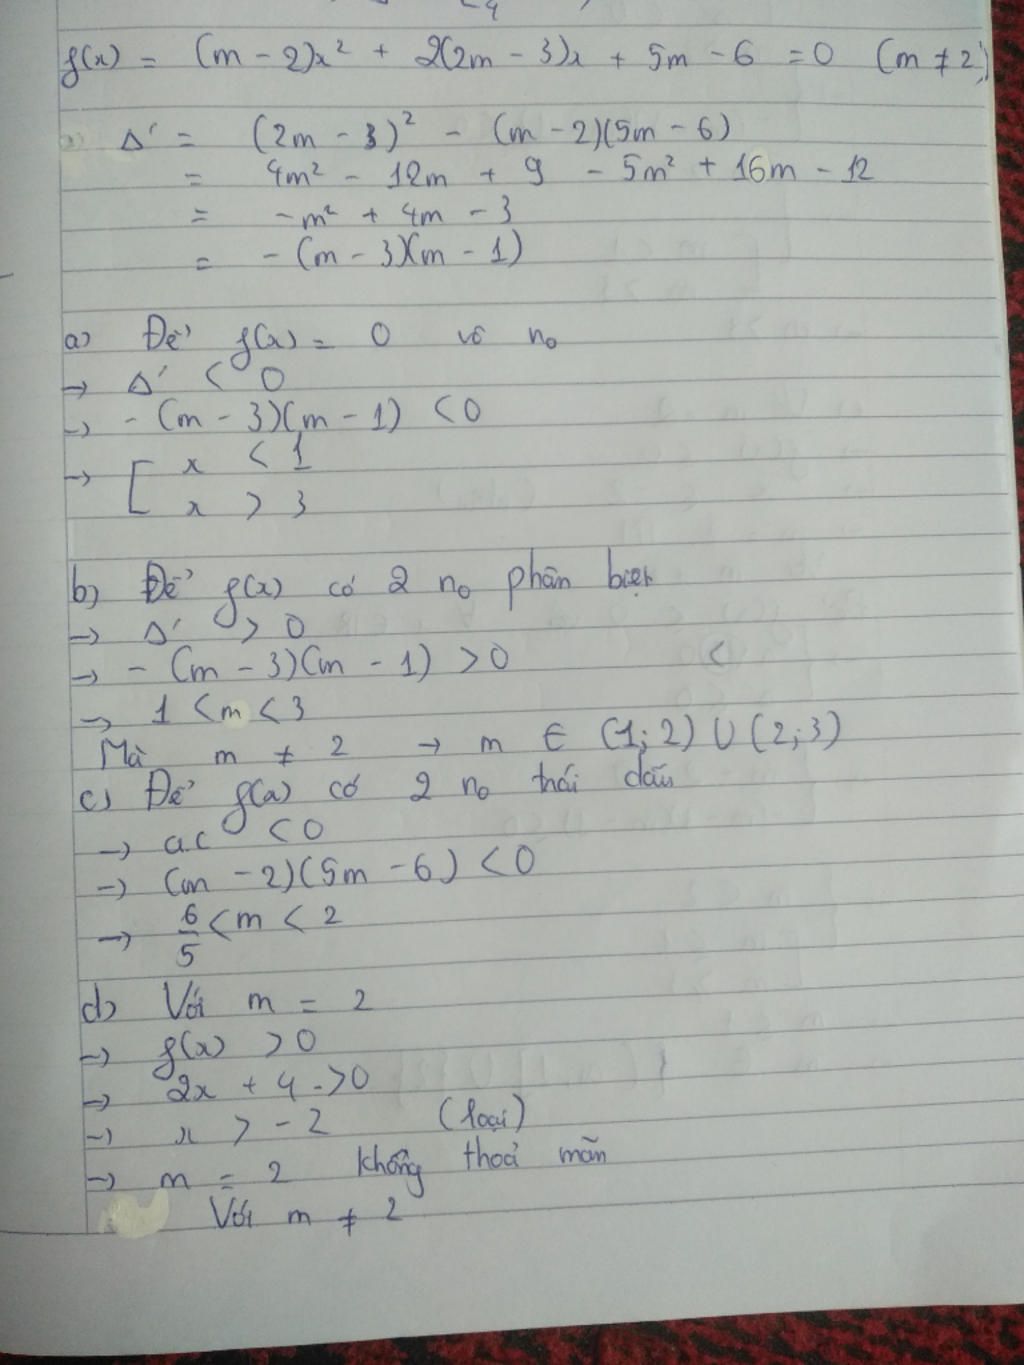 f(x) = (m - 2)x² + 2(2m - 3)x + 5m - 6 = 0 (m ≠ 2)
Δ' = (2m - 3)² - (m - 2)(5m - 6)
= 4m² - 12m + 9 - 5m² + 16m - 12
= -m² + 4m - 3
= - (m - 3)(m - 1)
a) Để f(x) = 0 vô no
→ Δ' < 0
→ - (m - 3)(m - 1) < 0
→ [ x < 1
x > 3
b) Để f(x) có 2 no phân biệt
→ Δ' > 0
→ - (m - 3)(m - 1) > 0 <
→ 1 < m < 3
Mà m ≠ 2 → m ∈ (1; 2) ∪ (2; 3)
c) Để f(x) có 2 no trái dấu
→ a.c < 0
→ (m - 2)(5m - 6) < 0
→ 6/5 < m < 2
d) Với m = 2
→ f(x) > 0
→ 2x + 4 > 0
→ x > -2 (loại)
→ m = 2 không thoả mãn
Với m ≠ 2